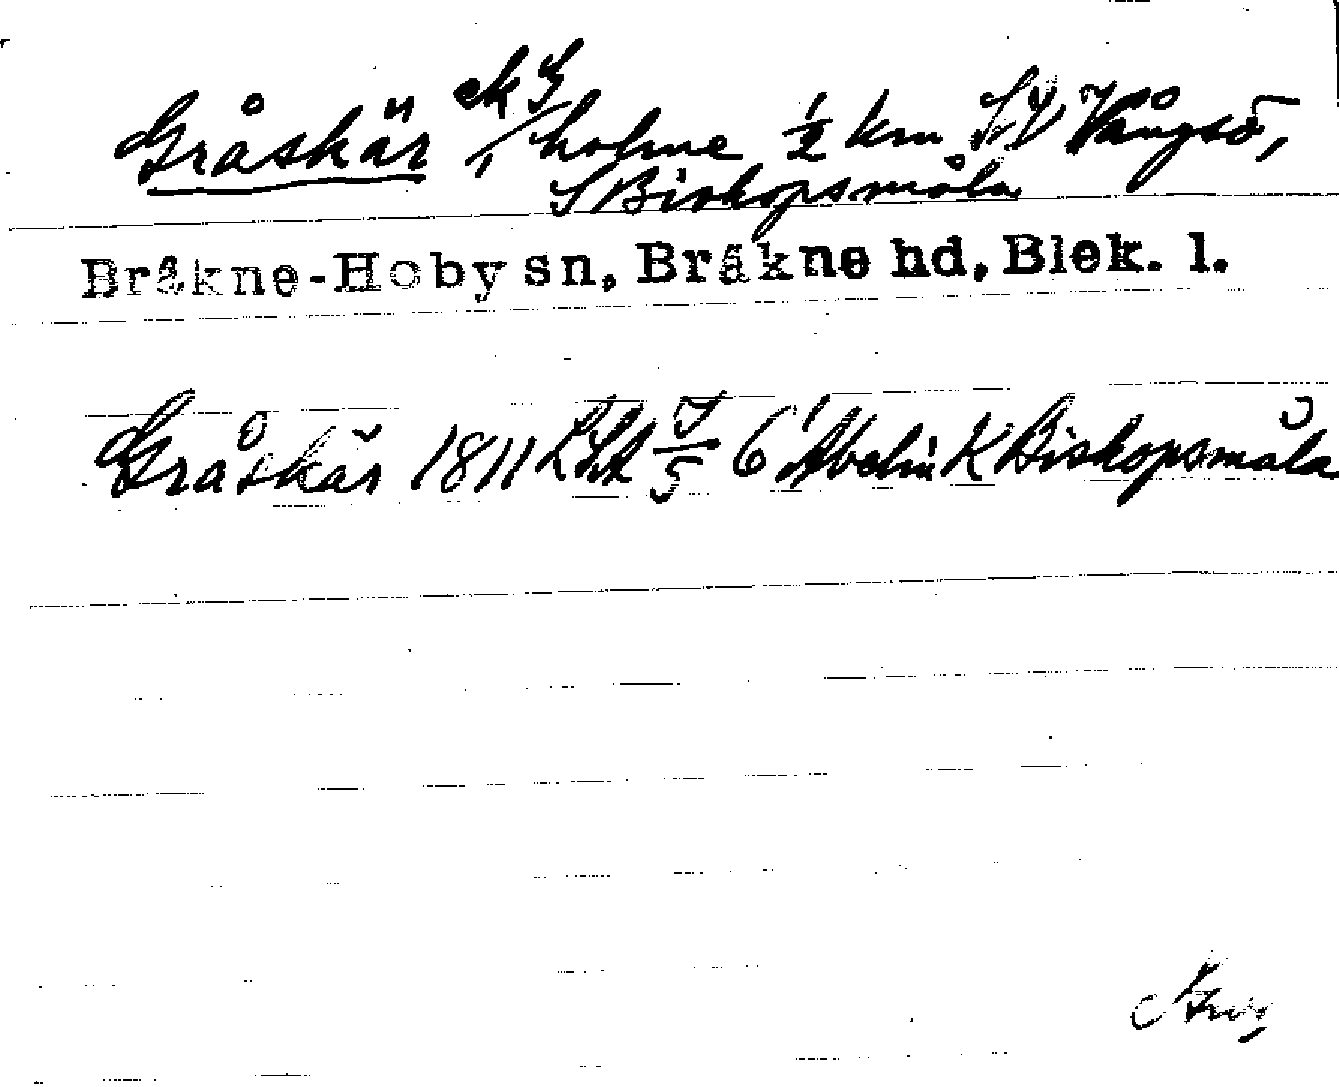 Gråskär ek S
/holme 1/2 km SV Vångsö,
S Biskopsmåla
Bräkne-Hoby sn, Bräkne hd, Blek. l.
Gråskär 1811 LSA J/5 6 Abelin K Biskopsmåla